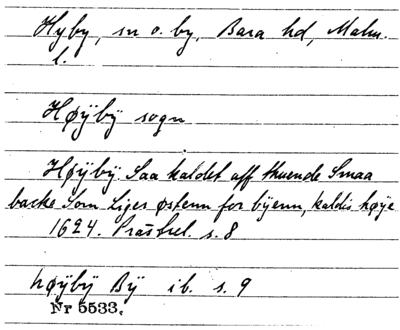 Hyby, sn o. by, Bara hd, Malm.
l.
Høÿbÿ sogn
Høÿbÿ Saa kaldet aff thuende Smaa
backe Som Liger østenn for bÿenn, kaldis høÿe
1624. Prästrel. s. 8
høÿbÿ Bÿ ib. s. 9
Nr 5533.